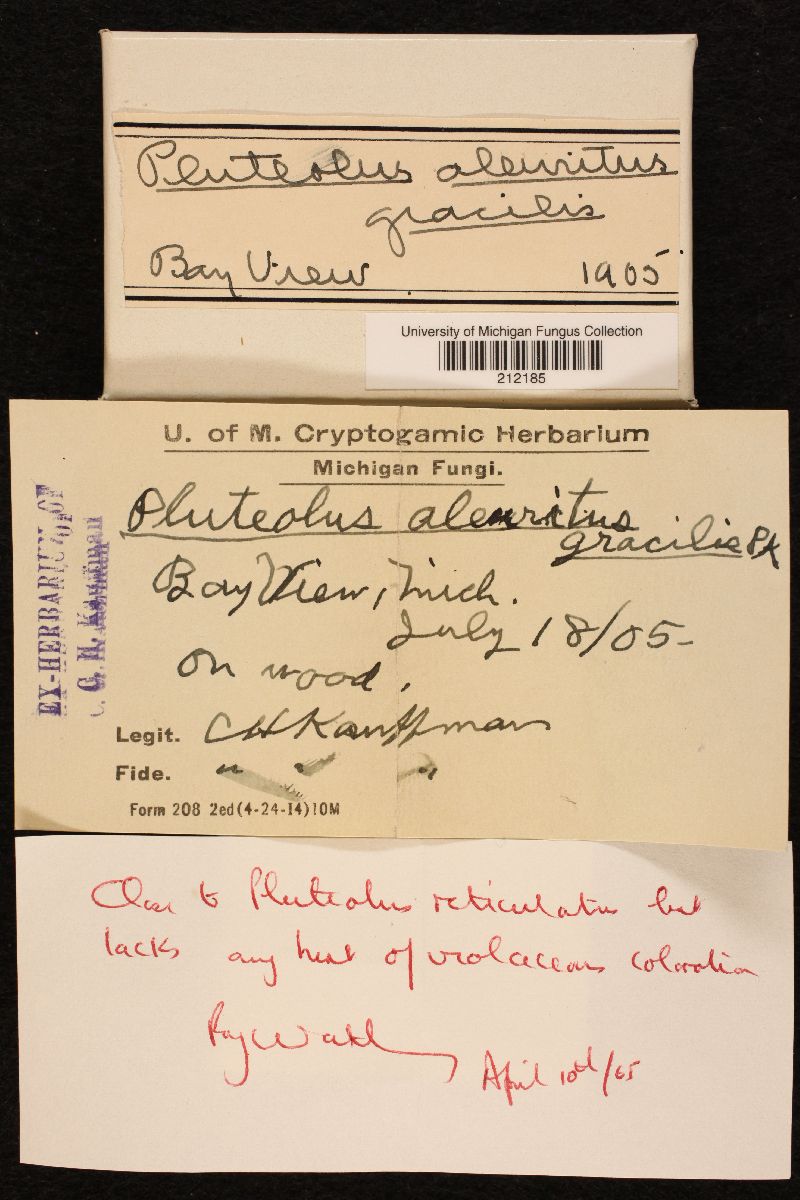 Pluteolus aleuritus
gracilis
Bay View 1905
University of Michigan Fungus Collection
212185
U. of M. Cryptogamic Herbarium
Michigan Fungi.
EX-HERBARIUM OF
C. H. Kauffman
Pluteolus aleuritus
gracilis Pk
Bay View, Mich.
July 18/05-
On wood.
Legit. CHKauffman
Fide. " " "
Form 208 2ed(4-24-14)10M
Close to Pluteolus reticulatus but
lacks any hint of violaceous coloration
Roy Watl
April 10th/65